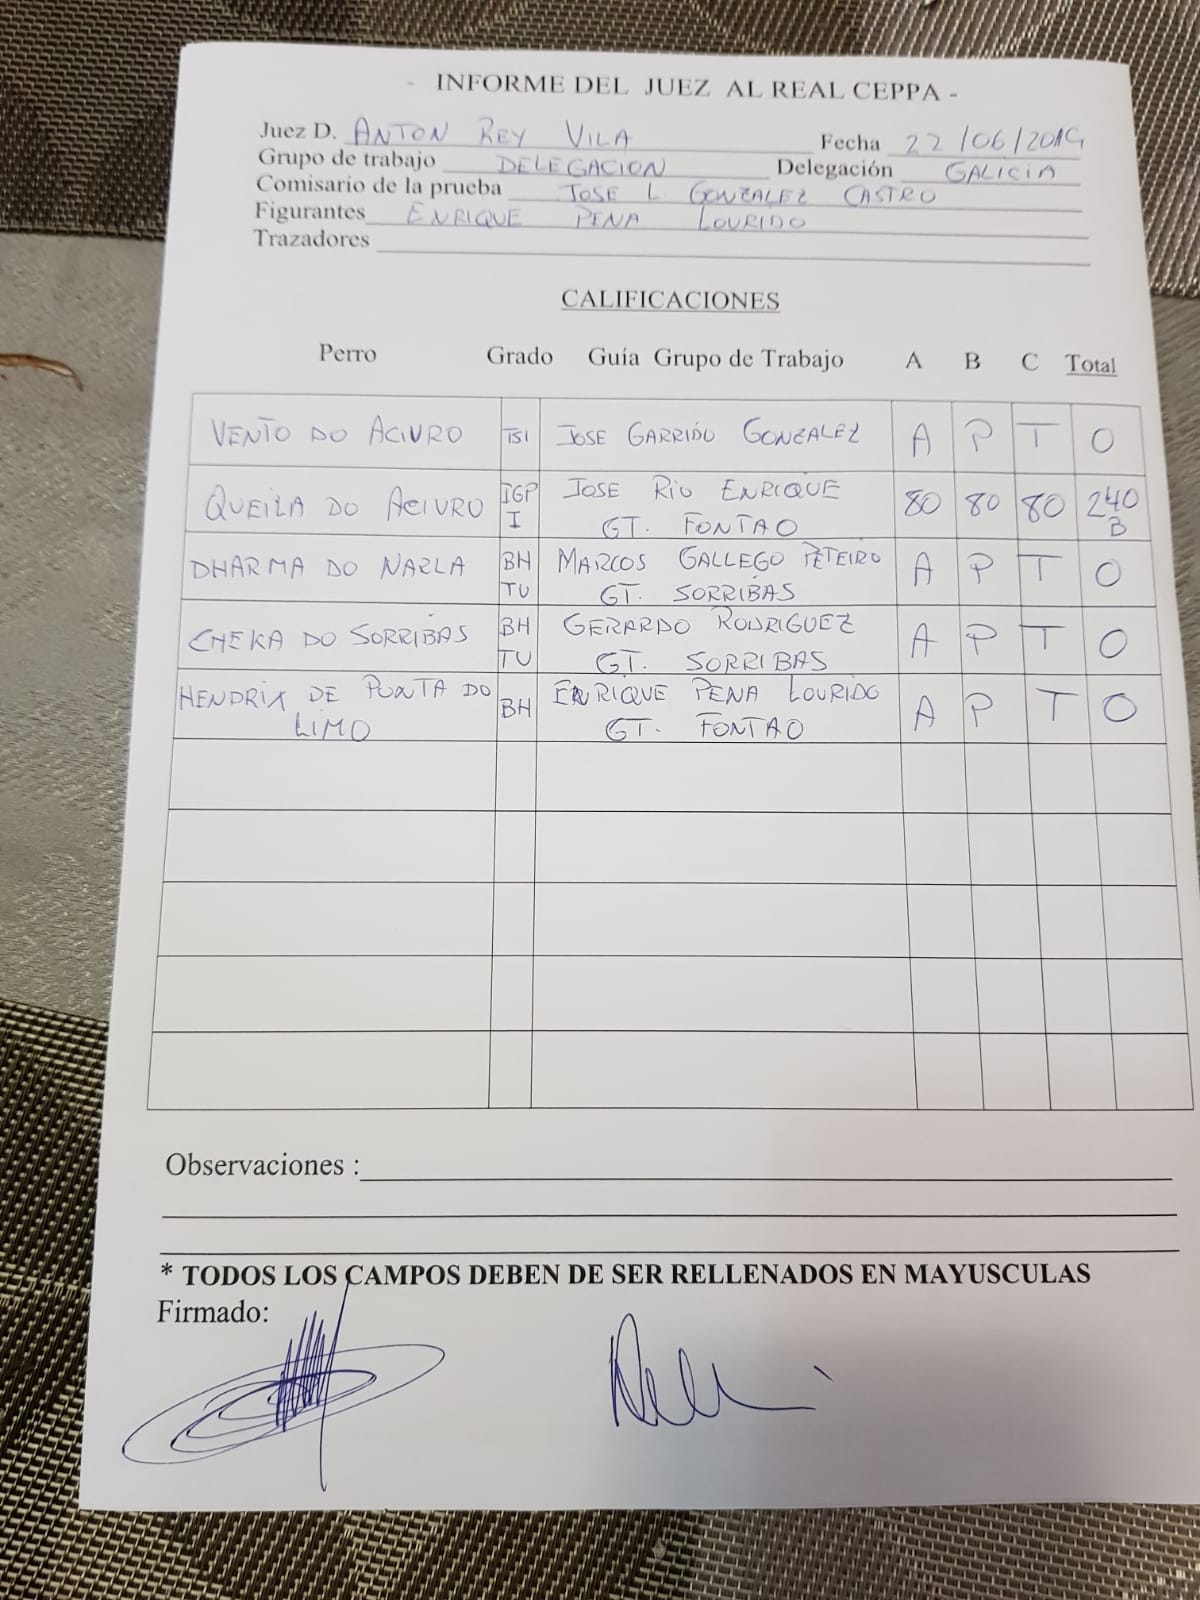 - INFORME DEL JUEZ AL REAL CEPPA -
Juez D. ANTON REY VILA Fecha 22/06/2019
Grupo de trabajo DELEGACION Delegación GALICIA
Comisario de la prueba JOSE L. GONZALEZ CASTRO
Figurantes ENRIQUE PENA LOURIDO
Trazadores
CALIFICACIONES
Perro Grado Guía Grupo de Trabajo A B C Total
VENTO DO ACIVRO TSI JOSE GARRIDO GONZALEZ A P T O
QUEILA DO ACIVRO IGP I JOSE RIO ENRIQUE 80 80 80 240
GT. FONTAO B
DHARMA DO NARLA BH MARCOS GALLEGO PETEIRO A P T O
TU GT. SORRIBAS
CHEKA DO SORRIBAS BH GERARDO RODRIGUEZ A P T O
TU GT. SORRIBAS
HENDRIX DE PUNTA DO BH ENRIQUE PENA LOURIDO A P T O
LIMO GT. FONTAO
Observaciones :
* TODOS LOS CAMPOS DEBEN DE SER RELLENADOS EN MAYUSCULAS
Firmado: